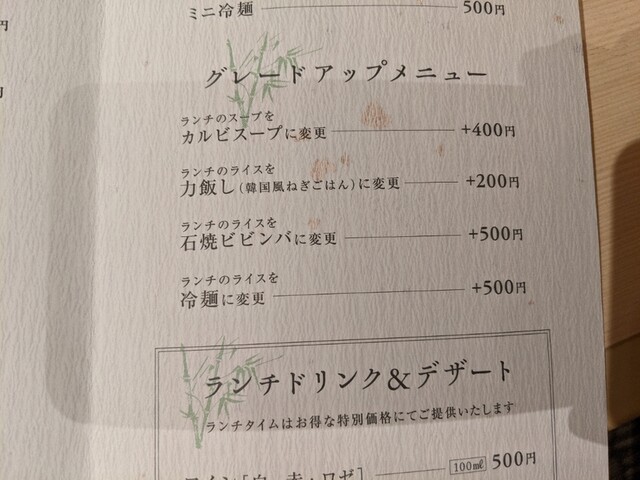 ミニ冷麺 500円
グレードアップメニュー
ランチのスープを
カルビスープに変更 +400円
ランチのライスを
力飯し(韓国風ねぎごはん)に変更 +200円
ランチのライスを
石焼ビビンバに変更 +500円
ランチのライスを
冷麺に変更 +500円
ランチドリンク&デザート
ランチタイムはお得な特別価格にてご提供いたします
ワイン[白・赤・ロゼ] 100㎖ 500円
円
円